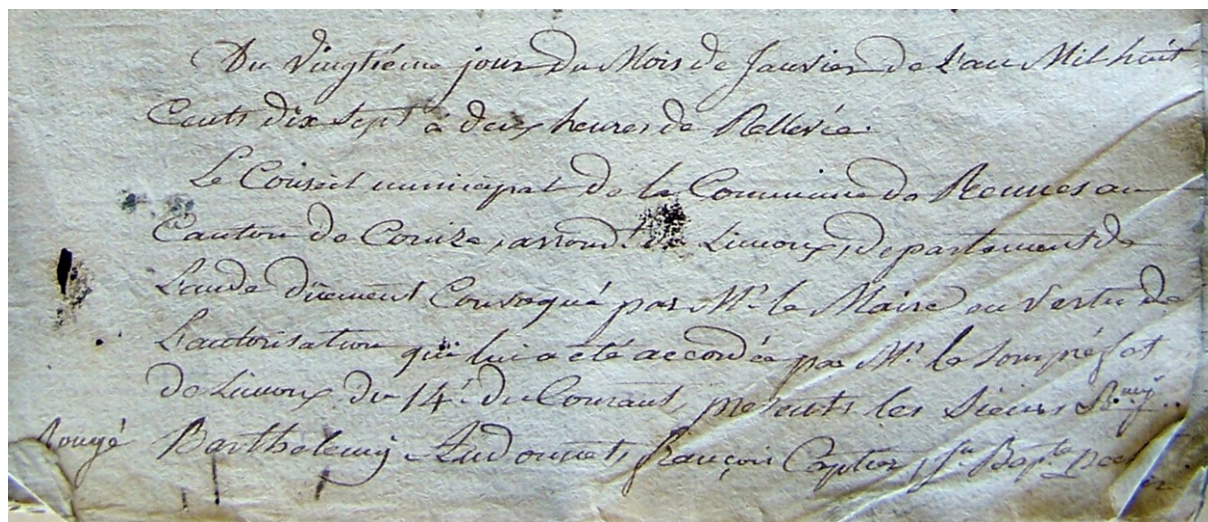 Du Vingtiéme jour du Mois de Janvier de L'an Mil huit
Cents dix Sept à deux heures de Rellevée.
Le Conseil municipal de la Commune de Rennes au
Canton de Couiza, arrondt. de Limoux, departement de
L'aude dûement Convoqué par Mr. le Maire en vertu de
L'autorisation qui lui a été accordée par Mr. le souspréfet
de Limoux du 14e. du Courant, présents les Sieurs
Rougé Barthelemy Audounet, François Captier, Jn Bapte